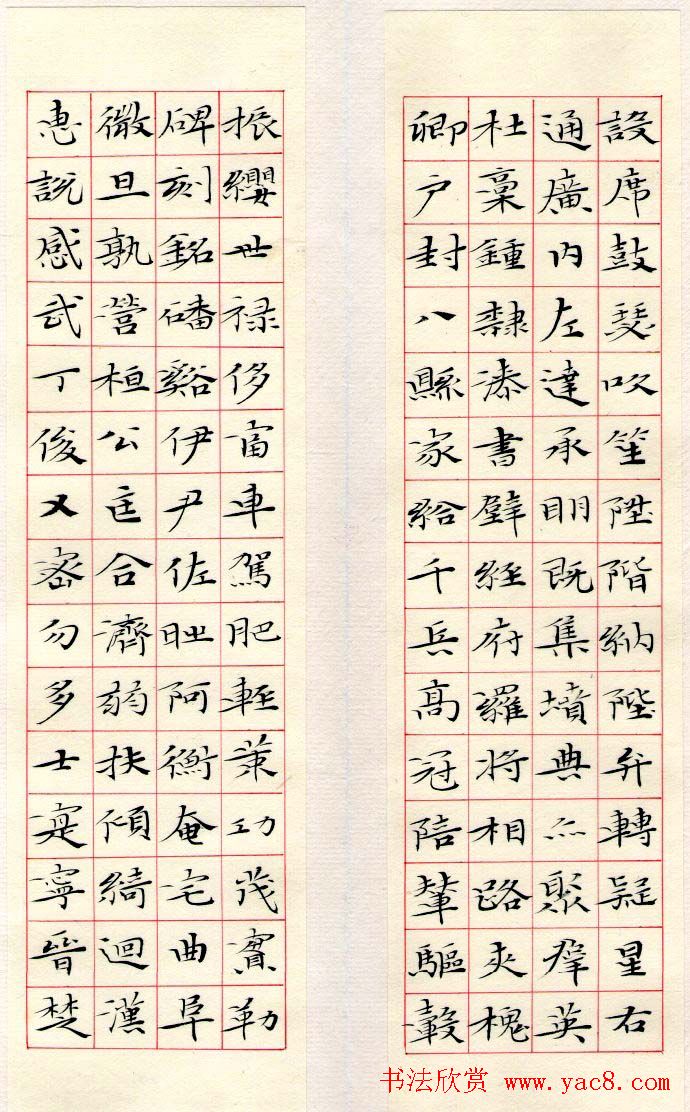 設席鼓瑟吹笙陞階納陛弁轉疑星右
通廣内左達承眀既集墳典亦聚羣英
杜稾鍾隸漆書壁經府羅將相路夾槐
卿户封八縣家給千兵高冠陪輦驅轂
振纓世禄侈富車駕肥輕策功茂實勒
碑刻銘磻谿伊尹佐時阿衡奄宅曲阜
微旦孰營桓公匡合濟弱扶傾綺迴漢
惠說感武丁俊乂密勿多士寔寧晉楚
书法欣赏 www.yac8.com